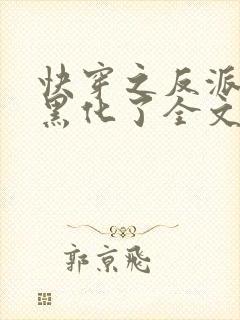 快穿之反派
黑化了全文
郭京飛